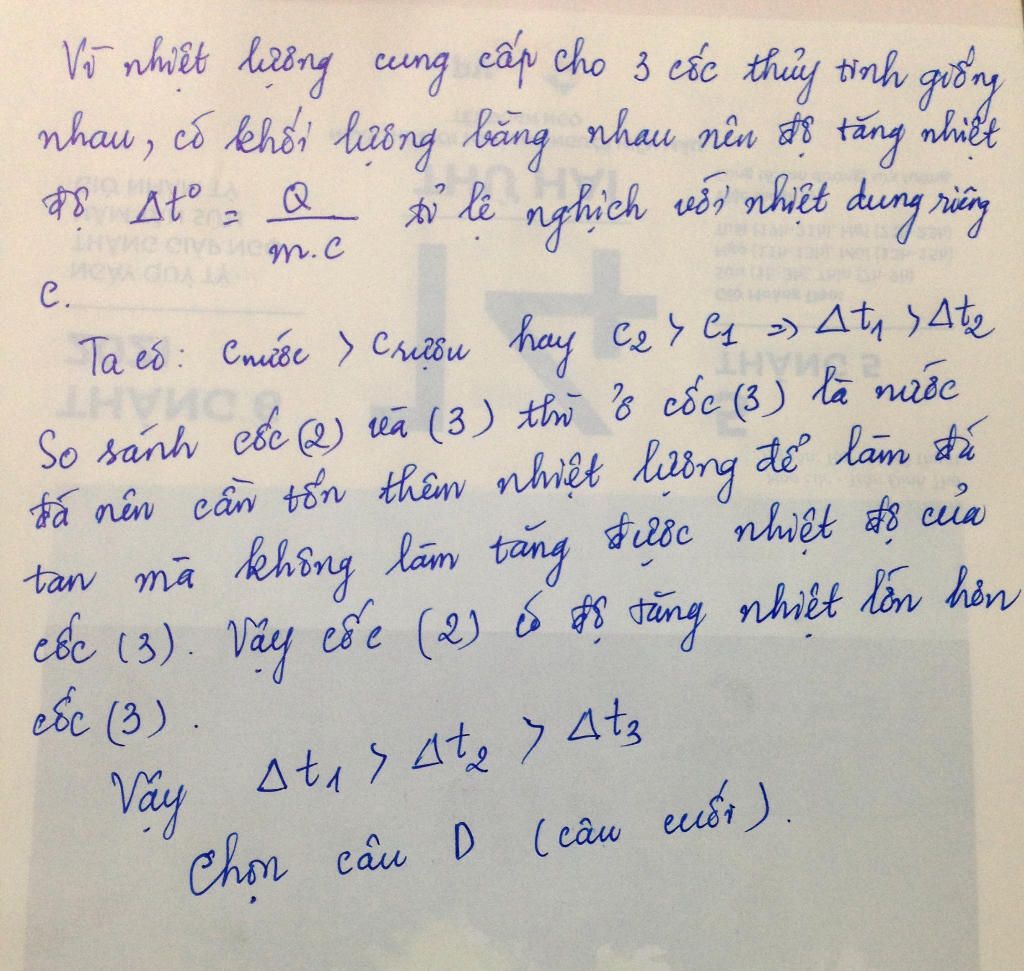 Vì nhiệt lượng cung cấp cho 3 cốc thủy tinh giống
nhau, có khối lượng bằng nhau nên độ tăng nhiệt
độ Δt° = Q / m.c tỉ lệ nghịch với nhiệt dung riêng
c.
Ta có: Cnước > Crượu hay C2 > C1 => Δt1 > Δt2
So sánh cốc (2) và (3) thì ở cốc (3) là nước
đá nên cần tốn thêm nhiệt lượng để làm đá
tan mà không làm tăng được nhiệt độ của
cốc (3). Vậy cốc (2) có độ tăng nhiệt lớn hơn
cốc (3).
Vậy Δt1 > Δt2 > Δt3
Chọn câu D (câu cuối).
THỨ HAI
14
THÁNG 5
5
THÁNG 6
NGÀY QUÝ TỴ
THÁNG GIÁP NGỌ